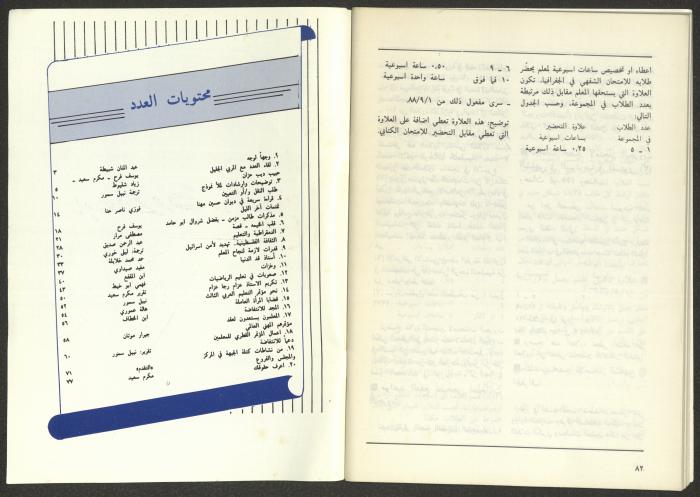 اعطاء او تخصيص ساعات اسبوعية لمعلم يحضّر
طلابه للامتحان الشفهي في الجغرافيا. تكون
العلاوة التي يستحقها المعلم مقابل ذلك مرتبطة
بعدد الطلاب في المجموعة، وحسب الجدول
التالي:
عدد الطلاب علاوة التحضير
في المجموعة بساعات اسبوعية
١ - ٥ ٠,٢٥ ساعة اسبوعية
٦ - ٩ ٠,٥٠ ساعة اسبوعية
١٠ فما فوق ساعة واحدة اسبوعية
ـ سرى مفعول ذلك من ٨٨/٩/١.
توضيح: هذه العلاوة تعطي اضافة على العلاوة
التي تعطي مقابل التحضير للامتحان الكتابي.
٨٢
محتويات العدد
١. وجهاً لوجه عبد المنان شبيطة ٣
٢. لقاء العدد مع المربي الجليل يوسف فرح - مكرم سعيد -
حبيب ديب حزان زياد شليوط ٥
٣. توضيحات وارشادات لملأ نموذج ترجمة نبيل سمور ١٠
طلب النقل و/او التعيين
٤. قراءة سريعة في ديوان حسين مهنا فوزي ناصر حنا ١٤
لتمات آخر الليل
٥. مذكرات طالب مزمن - بفضل شروال ابو حامد يوسف فرح ١٨
٦. قلب الخيمة - قصة مصطفى مرار ٢١
٧. الديمقراطية والتعليم عبد الرحمن صديق ٢٨
٨. الثقافة الفلسطينية.. تهديد لأمن اسرائيل ترجمة: ليلى خوري ٣٠
٩. قدرات لازمة لنجاح المعلم حمد محمد خلايلة ٣٣
١٠. أستاذ قد الدنيا مفيد صيداوي ٣٧
١١. وخزات ابن المقفع ٤٠
١٢. صعوبات في تعليم الرياضيات فهمي ابو خيط ٤٣
١٣. تكريم الاستاذ عزام رجا عزام تقرير مكرم سعيد ٥٠
١٤. نحو مؤتمر التعليم العربي الثالث نبيل سمور ٥٢
١٥. قضايا المرأة العاملة هالة عموري ٥٤
١٦. المجد للانتفاضة ابن الخطاف ٥٦
١٧. المعلمون يستعدون لعقد
مؤتمرهم المهني العالمي جيرار مونتان ٥٨
١٨. اعمال المؤتمر القطري للمعلمين
دعماً للانتفاضة تقرير: نبيل سمور ٦٠
١٩. من نشاطات كتلة الجبهة في المركز
والمجلس والفروع «التقدم» ٧١
٢٠. اعرف حقوقك مكرم سعيد ٧٧